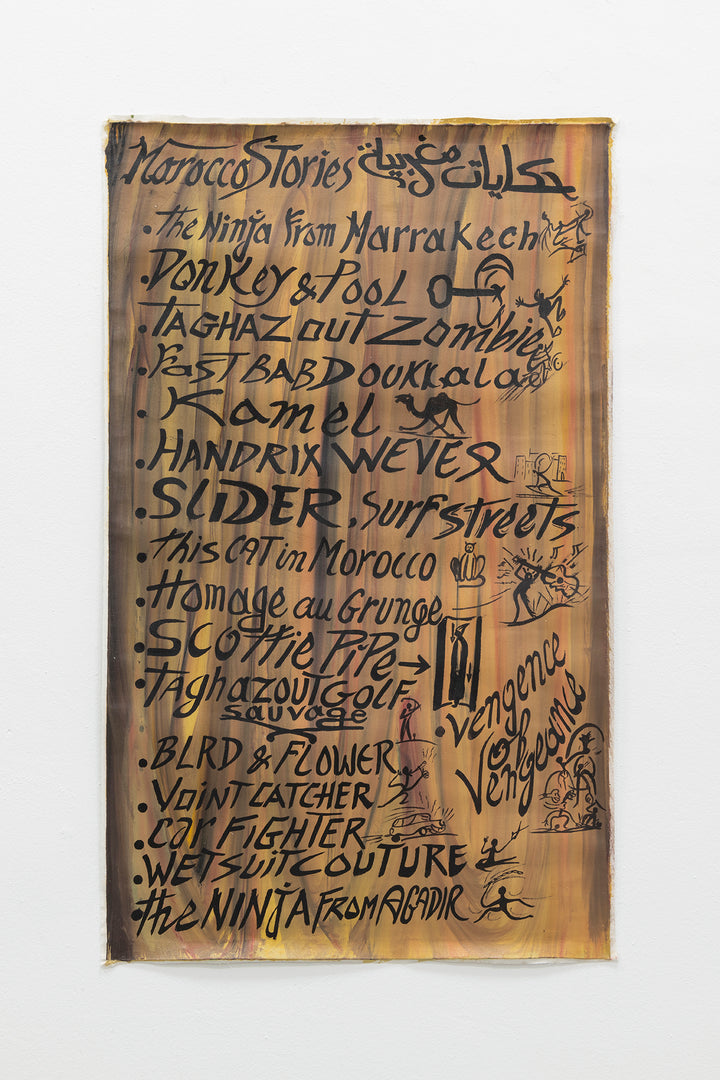 Morocco Stories حكايات مغربية
• the Ninja From Marrakech
• Donkey & Pool
• TAGHAZout Zombie
• Fast BAB Doukkala
• Kamel
• HANDRIX WEVER
• SLIDER, Surf streets
• this CAT in Morocco
• Homage au Grunge
• SCOttie PiPe →
• TAghazout GOLF
sauvage
• Vengence
of
Vengeance
• BLRD & FLOWER
• VOiNT CATCHER
• CAr FiGHTER
• WETSuit COUTURE
• the NINjA FROM AGADIR